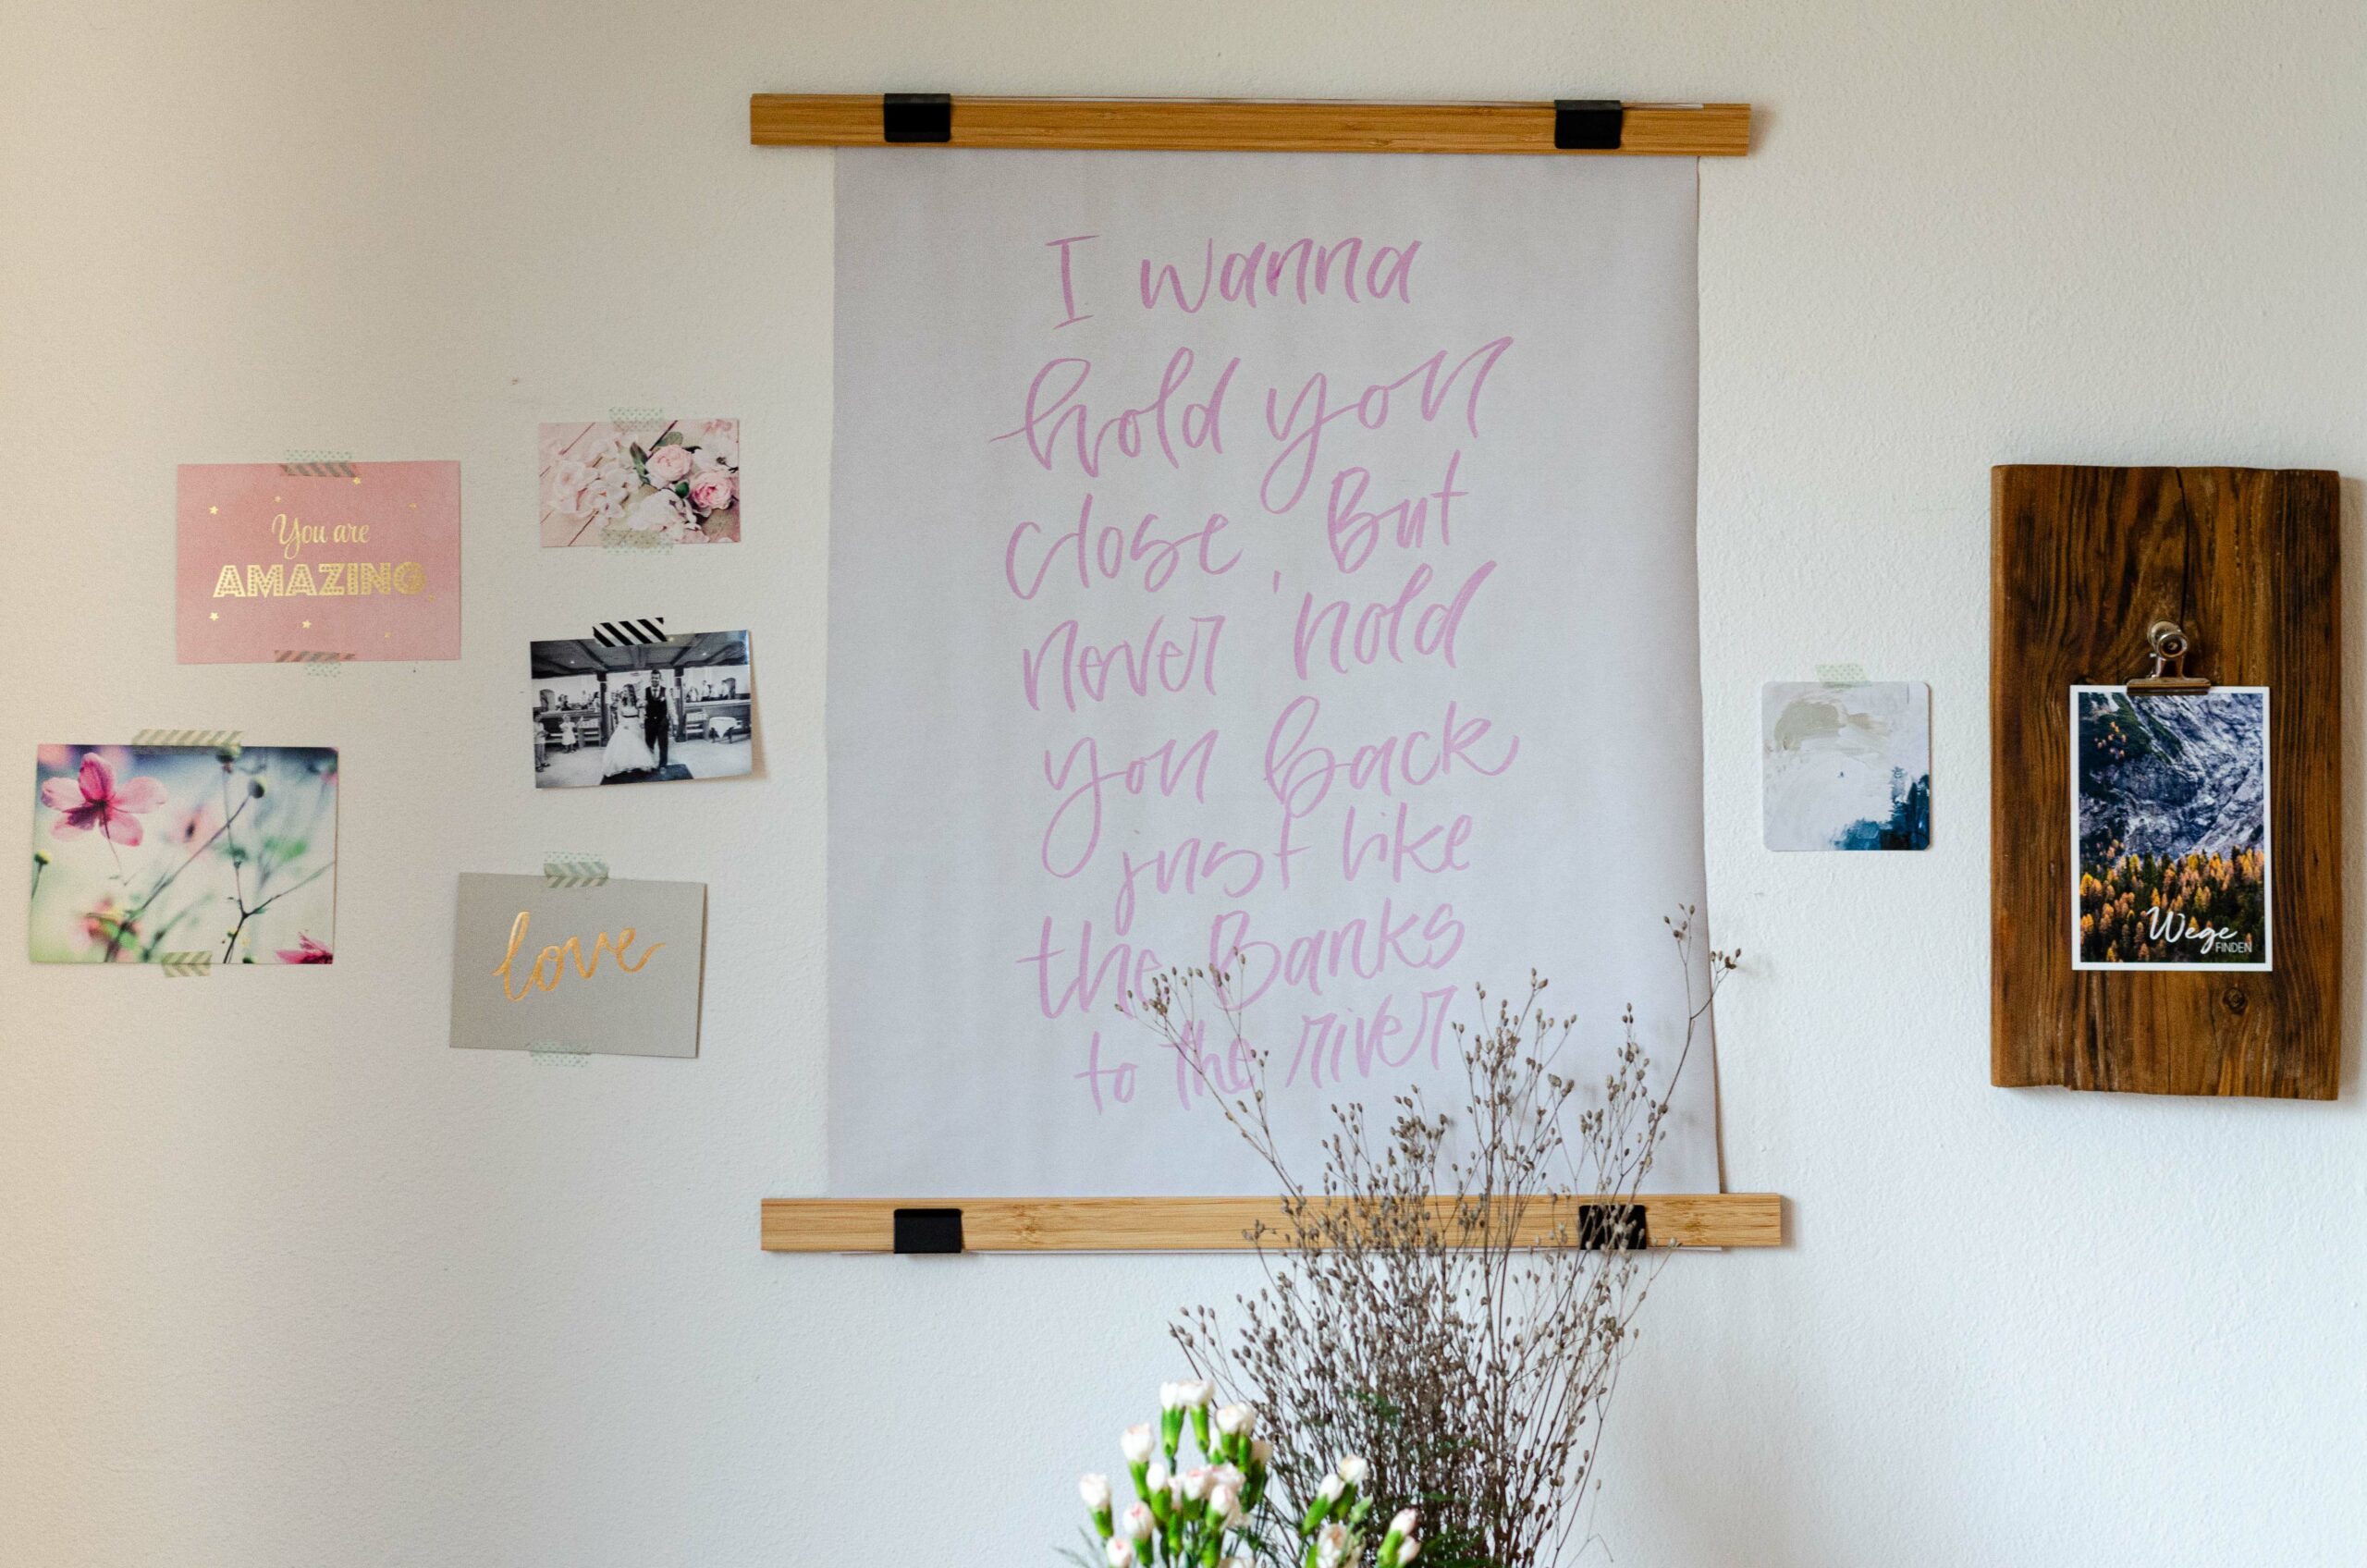 I wanna
hold you
close, But
never hold
you back
just like
the Banks
to the river
You are
AMAZING
love
Wege
FINDEN